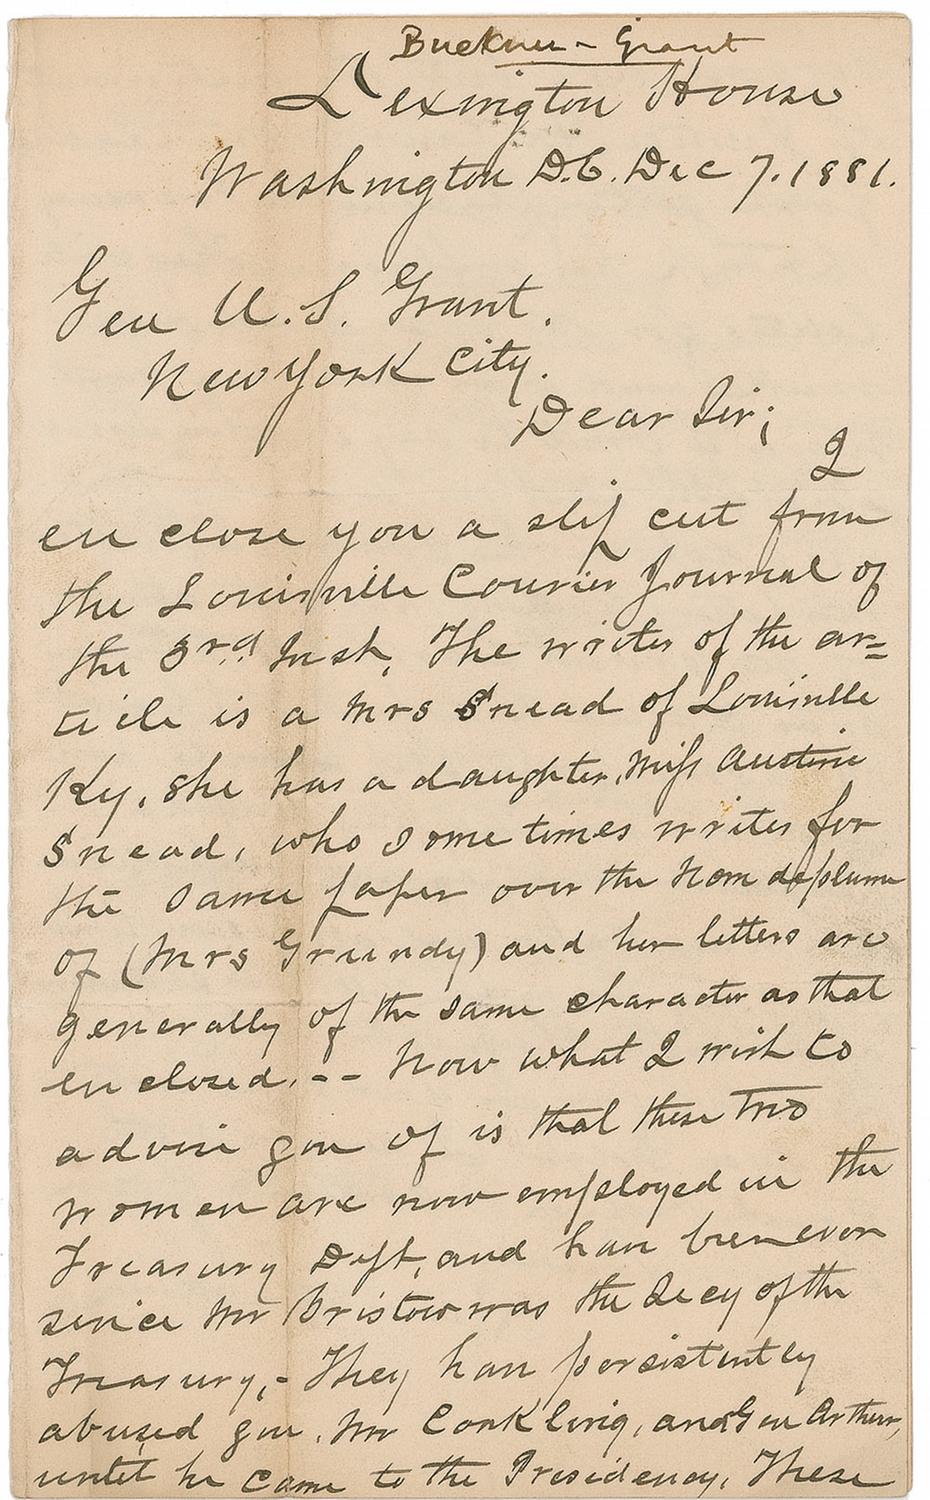 Buckner - Grant
Lexington House
Washington D.C. Dec 7. 1881.
Gen U. S. Grant.
New York City.
Dear Sir;
I
enclose you a slip cut from
the Louisville Courier Journal of
the 3rd Inst. The writer of the ar=
ticle is a Mrs Snead of Louisville
Ky. She has a daughter, Miss Austine
Snead, who sometimes writes for
the same paper over the nom de plume
of (Mrs Grundy) and her letters are
generally of the same character as that
enclosed. -- Now what I wish to
advise you of is that these two
women are now employed in the
Treasury Dept, and have been ever
since Mr Bristow was the Secy of the
Treasury, - They have persistently
abused you, Mr Conkling, and Gen Arthur,
until he came to the Presidency. These